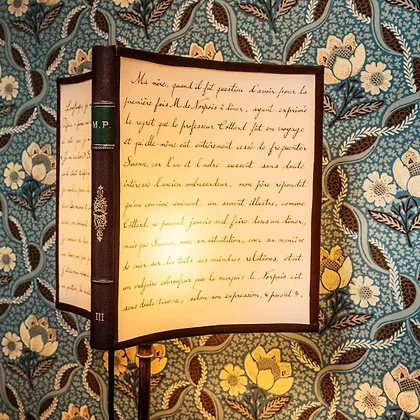 M. P.
III
Ma mère, quand il fut question d'avoir pour la
première fois M. de Norpois à dîner, ayant exprimé
le regret que le professeur Cottard fût en voyage
et qu'elle-même eût entièrement cessé de fréquenter
Swann, car l'un et l'autre eussent sans doute
intéressé l'ancien ambassadeur, mon père répondit
qu'un convive éminent, un savant illustre, comme
Cottard, ne pouvait jamais mal faire dans un dîner,
mais que Swann, avec son ostentation, avec sa manière
de crier sur les toits ses moindres relations, était
un vulgaire esbroufeur que le marquis de Norpois eût
sans doute trouvé, selon son expression, « puant ».